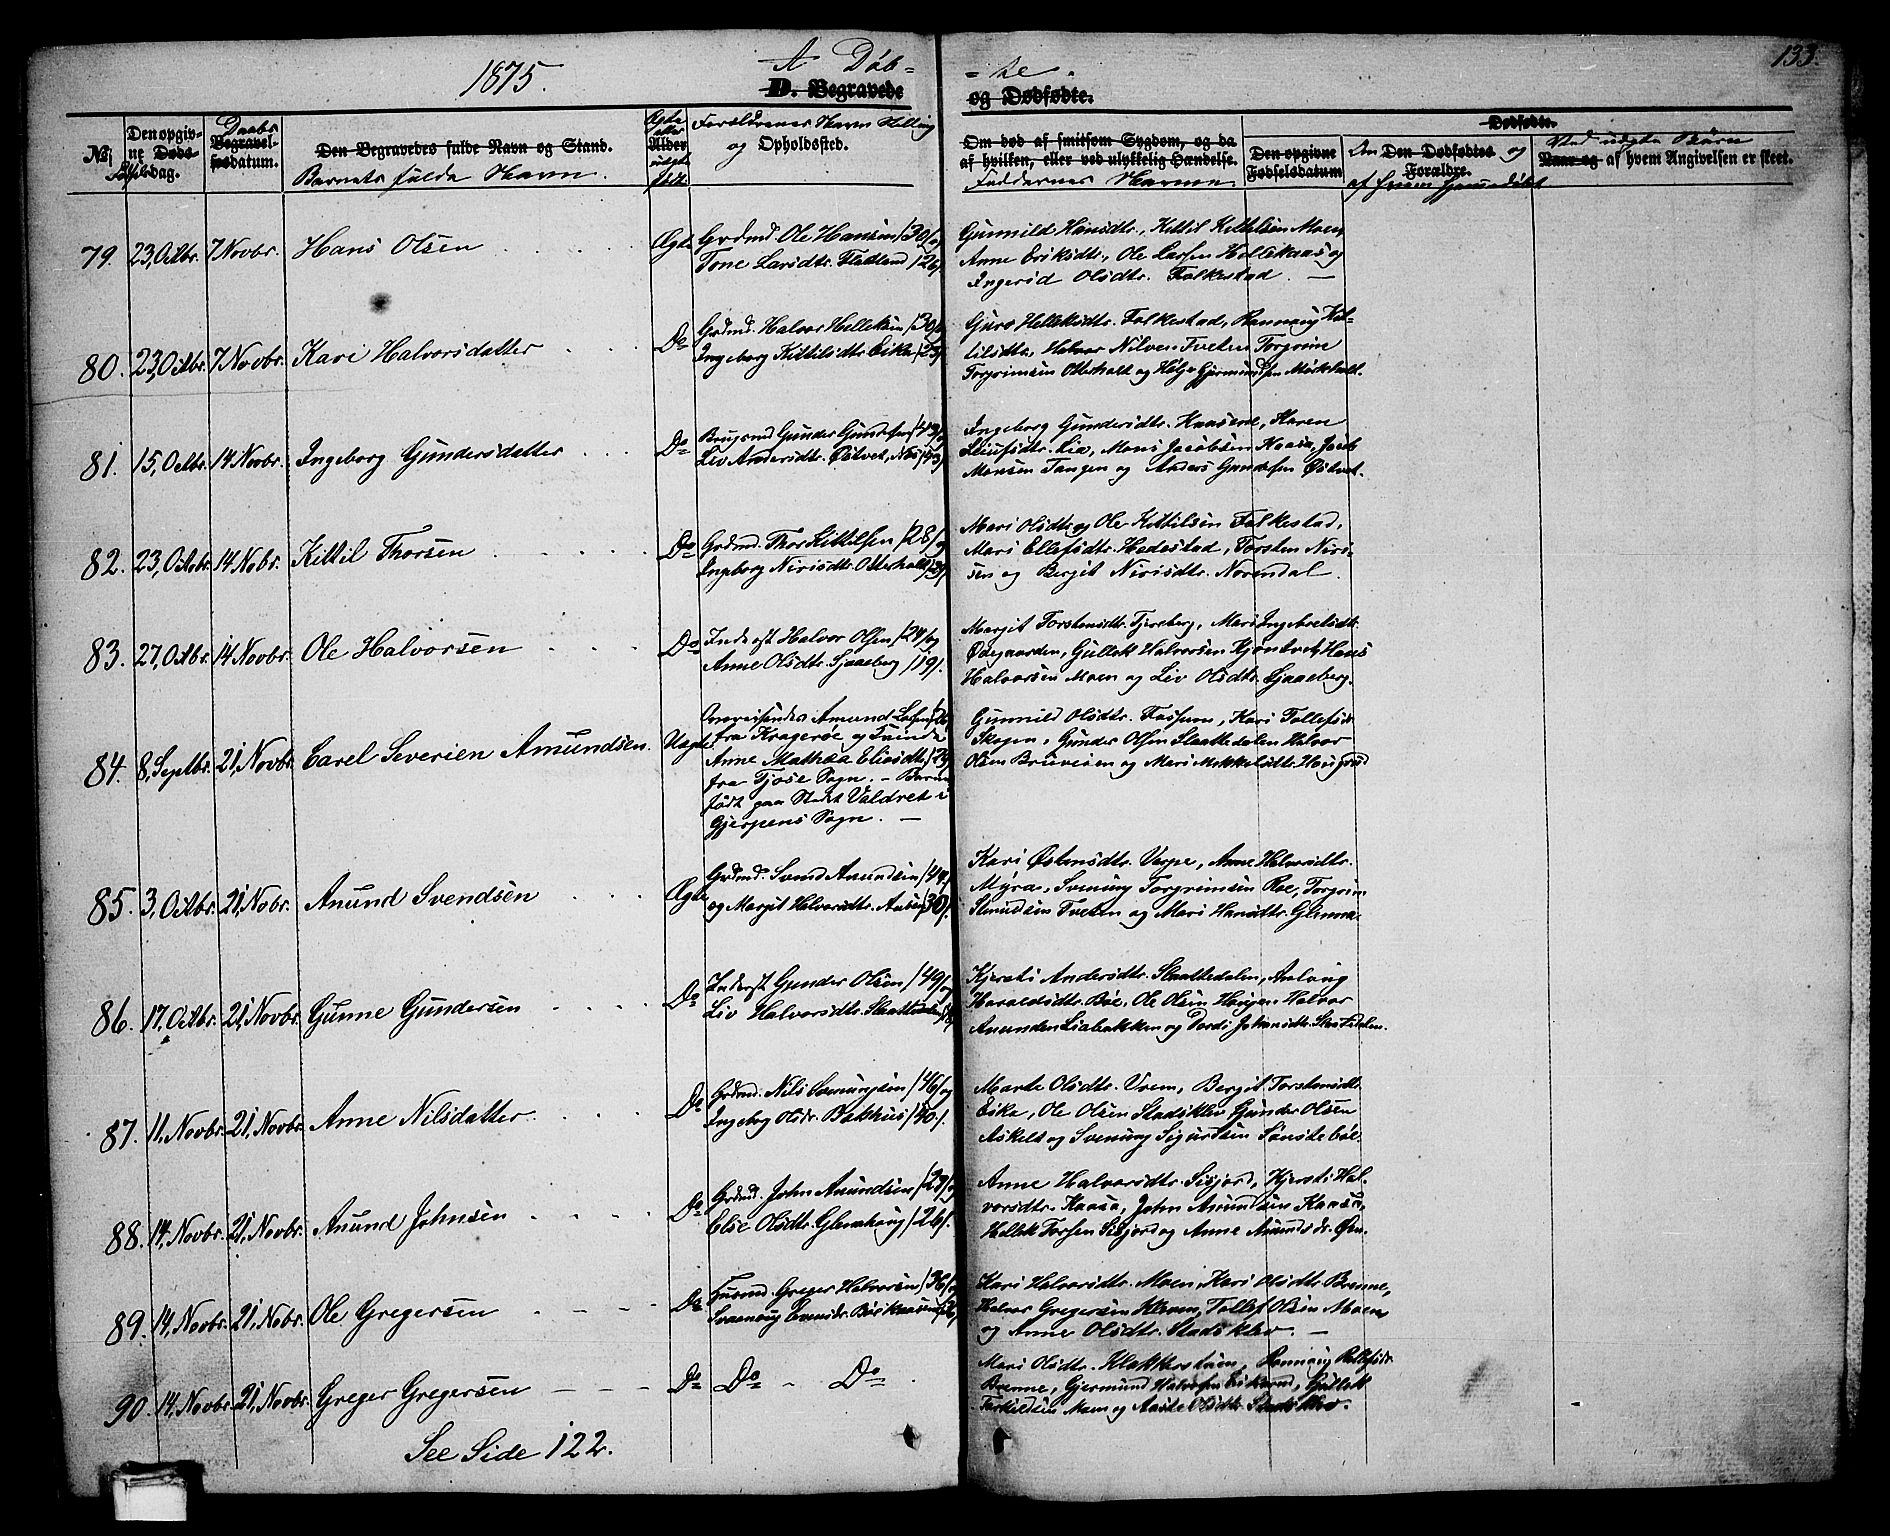 133.
1875.
A Døb- -te.
D. Begravede og Dødfødte.
No.
Den opgivne Dødsdag.
Daabs
Begravelsesdatum.
Den Begravedes fulde Navn og Stand.
Barnets fulde Navn.
Ægte eller Alder uægte
Forældrenes Navn Stilling
og Opholdssted.
Om død af smitsom Sygdom, og da
af hvilken, eller ved ulykkelig Hændelse.
Faddernes Navne
Dødfødte.
Den opgivne Fødselsdatum
Om Den Dødfødtes og Forældre.
af hvem hjemmedøbt
Ved uægte Børn
Naar og af hvem Angivelsen er skeet.
79. 23, Octbr. 7 Novbr. Hans Olsen Ægte
Grdmd Ole Hansen /30/ og
Tone Larsdtr. Flatland /26/.
Gunnild Hansdtr., Kittil Kittilsen Moen,
Anne Eriksdtr., Ole Larsen Hellekaas og
Ingerid Olsdtr. Folkestad. —
80. 23, Octbr. 7 Novbr. Kari Halvorsdatter Do
Grdmd. Halvor Helleksen /30/
Ingeborg Kittilsdtr. Eika /25/.
Guro Helleksdtr. Folkestad, Rannaug Kit-
tilsdtr., Halvor Nilsen Tveten Torgrim
Torgrimsen Otterholt og Helge Gjermundsen Mørkholt.
81. 15, Octbr. 14 Novbr. Ingeborg Gundersdatter Do
Brugsmd Gunder Gundersen /43/ og
Liv Andersdtr. Østvet,
Ingeborg Gundersdtr. Kaasene, Karen
Leiufsdtr. Lia, Mons Jacobsen Kaasa, Jacob
Monsen Tangen og Anders Gundersen Østvet.
82. 23, Octobr. 14 Nobr. Kittil Thorsen Do
Grdmd. Thor Kittilsen /28/ og
Ingeborg Nirisdtr. Otterholt
Mari Olsdtr. og Ole Kittilsen Folkestad,
Mari Ellefsdtr. Hedestad, Torsten Niri-
sen og Bergit Nirisdtr. Norendal.
83. 27, Octbr. 14 Novbr. Ole Halvorsen Do
Inderst Halvor Olsen /24/ og
Anne Olsdtr. Gjaaeberg /19/.
Margit Torstensdtr. Fjereberg, Mari Ingebretsdtr.
Ødegaarden, Gullek Halvorsen Kjøntvet, Hans
Halvorsen Moen og Liv Olsdtr. Gjaaeberg.
84. 8, Septbr. 21, Novbr. Carel Severien Amundsen. Uægte
Omreisendes Amund Larsen
fra Kragerøe og Kvinde
Anne Mathea Eliasdtr.
fra Tjøse Sogn. — Barnet
født paa Stedet Valdret i
Gjerpens Sogn. —
Gunnild Olsdtr. Fossum, Kari Tollefsdr
Skogen, Gunder Olsen Slaattedalen Halvor
Olsen Bruveien og Mari Mikkelsdtr. Haugrud
85. 3, Octbr. 21, Nobr. Anund Svendsen Ægte
Grdmd. Svend Anundsen /44/
og Margit Halvorsdtr. /30/.
Kari Østensdtr. Verpe, Anne Halvorsdtr.
Myra, Svenung Torgrimsen Roe, Torgrim
Tveten og Mari Hansdtr. Glenna.
86. 17, Octbr. 21, Novbr. Gunne Gundersen Do
Inderst Gunder Olsen /49/ og
Liv Halvorsdtr. Slaattedalen
Kjersti Andersdtr. Slaattedalen, Aslaug
Haraldsdtr. Bøe, Ole Olsen Haugen Halvor
Anundsen Liabakken og Dordi Johansdtr. Slaattedalen.
87. 11, Novbr. 21, Novbr. Anne Nilsdatter. Do
Grdmd. Nils Svenungsen /46/ og
Ingeborg Olsdtr. Bakhus /40/.
Marte Olsdtr. Vrem, Bergit Torstensdtr.
Eika, Ole Olsen Stadskliv Gunder Olsen
Askelt og Svenung Sigurdsen Sønstebøe.
88. 14, Novbr. 21, Novbr. Anund Johnsen Do
Grdmd. John Anundsen /29/ og
Elise Olsdtr. Glenehaug /26/.
Anne Halvorsdtr. Sisjord, Kjersti Hal-
vorsdtr. Kaasa, John Anundsen Kaasa,
Hellek Torsen Sisjord og Anne Anundsdr. Øen.
89. 14, Novbr. 21, Nobr. Ole Gregersen Do
Husmd. Greger Halvorsen /36/ og
Kari Halvorsdtr. Moen, Kari Olsdtr. Brenne,
Halvor Gregersen Kleven, Tollef Olsen Moen
og Anne Olsdtr. Stadskliv. —
90. 14, Novbr. 21, Novbr. Greger Gregersen Do Do - Do
Mari Olsdtr. Klokkerstuen, Rannaug Rollefsdr.
Brenne, Gjermund Halvorsen Eikerud, Gullek
Terkildsen Moen og Aaste Olsdtr. Stadskliv.
See Side 122.